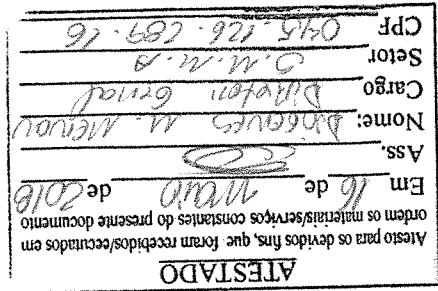 ATESTADO
Atesto para os devidos fins, que foram recebidos/executados em
ordem os materiais/serviços constantes do presente documento
Em 16 de maio de 2018
Ass.
Nome: M.
Cargo Diretor Geral
Setor S.M.M.A
CPF 045.126.